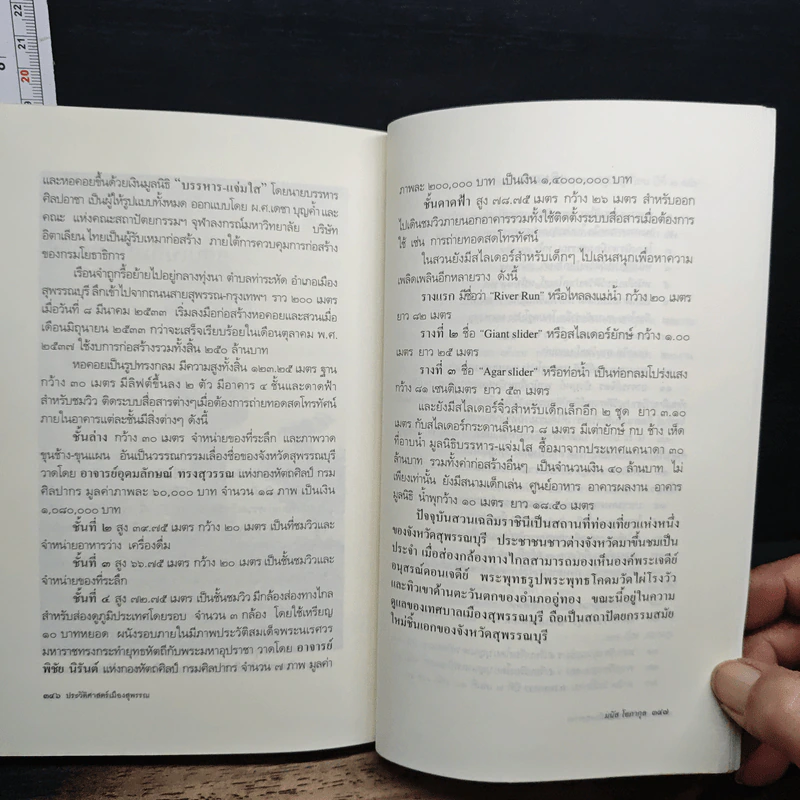 และหอคอยขึ้นด้วยเงินมูลนิธิ "บรรหาร-แจ่มใส" โดยนายบรรหาร
ศิลปอาชา เป็นผู้ให้รูปแบบทั้งหมด ออกแบบโดย ผ.ศ.เดชา บุญค้ำ และ
คณะ แห่งคณะสถาปัตยกรรมฯ จุฬาลงกรณ์มหาวิทยาลัย บริษัท
อิตาเลียนไทยเป็นผู้รับเหมาก่อสร้าง ภายใต้การควบคุมการก่อสร้าง
ของกรมโยธาธิการ
เรือนจำถูกรื้อย้ายไปอยู่กลางทุ่งนา ตำบลท่าระหัด อำเภอเมือง
สุพรรณบุรี ลึกเข้าไปจากถนนสายสุพรรณ-กรุงเทพฯ ราว ๒๐๐ เมตร
เมื่อวันที่ ๘ มีนาคม ๒๕๓๓ เริ่มลงมือก่อสร้างหอคอยและสวนเมื่อ
เดือนมิถุนายน ๒๕๓๓ กว่าจะเสร็จเรียบร้อยในเดือนตุลาคม พ.ศ.
๒๕๓๗ ใช้งบการก่อสร้างรวมทั้งสิ้น ๒๕๐ ล้านบาท
หอคอยเป็นรูปทรงกลม มีความสูงทั้งสิ้น ๑๒๓.๒๕ เมตร ฐาน
กว้าง ๓๐ เมตร มีลิฟต์ขึ้นลง ๒ ตัว มีอาคาร ๔ ชั้นและดาดฟ้า
สำหรับชมวิว ติดระบบสื่อสารต่างๆเมื่อต้องการถ่ายทอดสดโทรทัศน์
ภายในอาคารแต่ละชั้นมีสิ่งต่างๆ ดังนี้
ชั้นล่าง กว้าง ๓๐ เมตร จำหน่ายของที่ระลึก และภาพวาด
ขุนช้าง-ขุนแผน อันเป็นวรรณกรรมเลื่องชื่อของจังหวัดสุพรรณบุรี
วาดโดย อาจารย์อุดมลักษณ์ ทรงสุวรรณ แห่งกองหัตถศิลป์ กรม
ศิลปากร มูลค่าภาพละ ๖๐,๐๐๐ บาท จำนวน ๑๘ ภาพ เป็นเงิน
๑,๐๘๐,๐๐๐ บาท
ชั้นที่ ๒ สูง ๓๓.๗๕ เมตร กว้าง ๒๐ เมตร เป็นที่ชมวิวและ
จำหน่ายอาหารว่าง เครื่องดื่ม
ชั้นที่ ๓ สูง ๖๖.๗๕ เมตร กว้าง ๒๐ เมตร เป็นชั้นชมวิวและ
จำหน่ายของที่ระลึก
ชั้นที่ ๔ สูง ๗๒.๗๕ เมตร เป็นชั้นชมวิว มีกล้องส่องทางไกล
สำหรับส่องดูภูมิประเทศโดยรอบ จำนวน ๓ กล้อง โดยใช้เหรียญ
๑๐ บาทหยอด ผนังรอบภายในมีภาพประวัติสมเด็จพระนเรศวร
มหาราชทรงกระทำยุทธหัตถีกับพระมหาอุปราชา วาดโดย อาจารย์
พิชัย นิรันต์ แห่งกองหัตถศิลป์ กรมศิลปากร จำนวน ๗ ภาพ มูลค่า
๓๔๖ ประวัติศาสตร์เมืองสุพรรณ
ภาพละ ๒๐๐,๐๐๐ บาท เป็นเงิน ๑,๔๐๐๐,๐๐๐ บาท
ชั้นดาดฟ้า สูง ๗๘.๗๕ เมตร กว้าง ๒๖ เมตร สำหรับออก
ไปเดินชมวิวภายนอกอาคารรวมทั้งใช้ติดตั้งระบบสื่อสารเมื่อต้องการ
ใช้ เช่น การถ่ายทอดสดโทรทัศน์
ในสวนยังมีสไลเดอร์สำหรับเด็กๆ ไปเล่นสนุกเพื่อหาความ
เพลิดเพลินอีกหลายราง ดังนี้
รางแรก มีชื่อว่า "River Run" หรือไหลลงแม่น้ำ กว้าง ๒๐ เมตร
ยาว ๘๒ เมตร
รางที่ ๒ ชื่อ "Giant slider" หรือสไลเดอร์ยักษ์ กว้าง ๑.๐๐
เมตร ยาว ๒๕ เมตร
รางที่ ๓ ชื่อ "Agar slider" หรือท่อน้ำ เป็นท่อกลมโปร่งแสง
กว้าง ๘๑ เซนติเมตร ยาว ๕๓ เมตร
และยังมีสไลเดอร์จิ๋วสำหรับเด็กเล็กอีก ๒ ชุด ยาว ๓.๑๐
เมตร กับสไลเดอร์กระดานลื่นยาว ๘ เมตร มีเต่ายักษ์ กบ ช้าง เห็ด
ที่อาบน้ำ มูลนิธิบรรหาร-แจ่มใส ซื้อมาจากประเทศแคนาดา ๓๐
ล้านบาท รวมทั้งค่าก่อสร้างอื่นๆ เป็นจำนวนเงิน ๔๐ ล้านบาท ไม่
เพียงเท่านั้น ยังมีสนามเด็กเล่น ศูนย์อาหาร อาคารผลงาน อาคาร
มูลนิธิ น้ำพุกว้าง ๑๐ เมตร ยาว ๑๘.๕๐ เมตร
ปัจจุบันสวนเฉลิมราชินีเป็นสถานที่ท่องเที่ยวแห่งหนึ่ง
ของจังหวัดสุพรรณบุรี ประชาชนชาวต่างจังหวัดมาขึ้นชมเป็น
ประจำ เมื่อส่องกล้องทางไกลสามารถมองเห็นองค์พระเจดีย์
อนุสรณ์ดอนเจดีย์ พระพุทธรูปพระพุทธโคดมวัดไผ่โรงวัว
และทิวเขาด้านตะวันตกของอำเภออู่ทอง ขณะนี้อยู่ในความ
ดูแลของเทศบาลเมืองสุพรรณบุรี ถือเป็นสถาปัตยกรรมสมัย
ใหม่ชิ้นเอกของจังหวัดสุพรรณบุรี
มนัส โอภากุล ๓๔๗
20
21
22